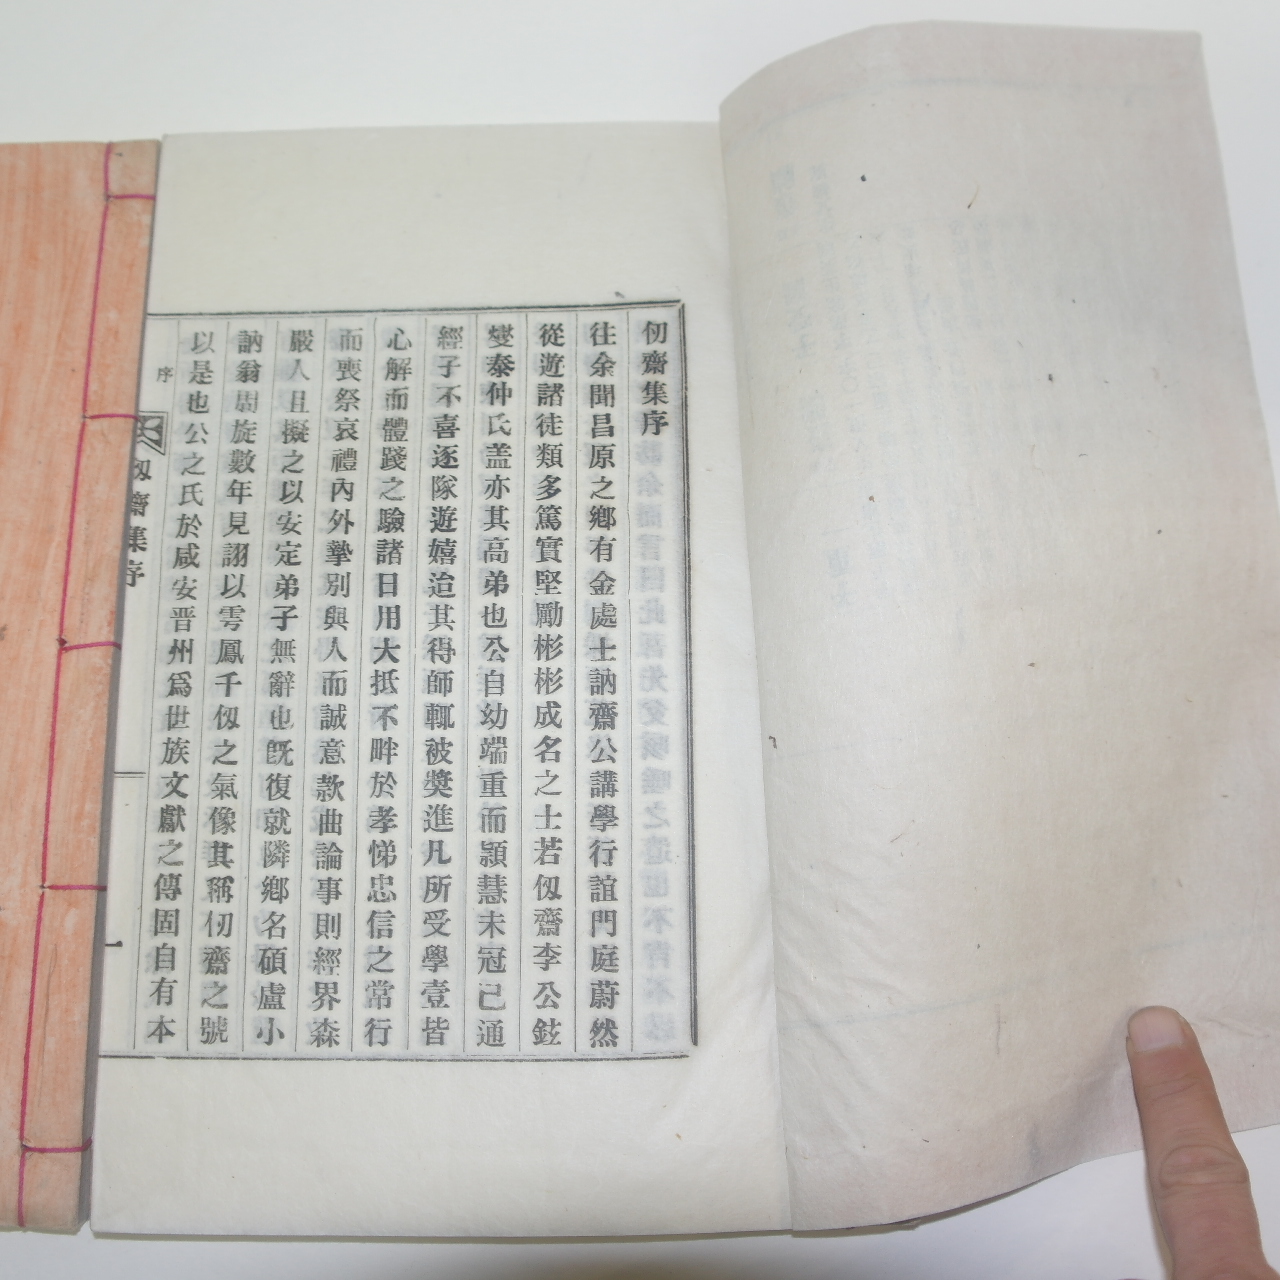 仞齋集序
往余聞昌原之鄕有金處士訥齋公講學行誼門庭蔚然
從遊諸徒類多篤實堅勵彬彬成名之士若仞齋李公鉉
燮泰仲氏盖亦其高弟也公自幼端重而頴慧未冠已通
經子不喜逐隊遊嬉迨其得師輒被奬進凡所受學壹皆
心解而體踐之驗諸日用大抵不畔於孝悌忠信之常行
而喪祭哀禮內外摯別與人而誠意款曲論事則經界森
嚴人且擬之以安定弟子無辭也旣復就隣鄕名碩盧小
訥翁周旋數年見詡以雩鳳千仞之氣像其稱仞齋之號
以是也公之氏於咸安晋州爲世族文獻之傳固自有本
序
仞齋集序
一